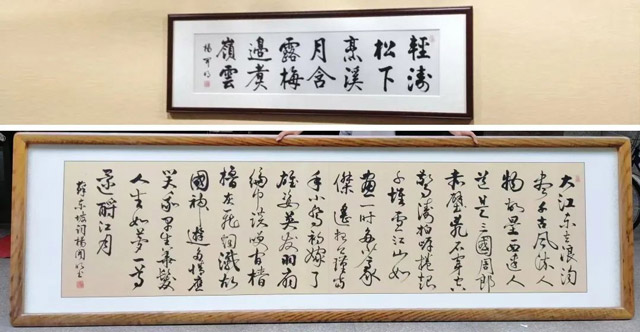 輕濤
松下
烹溪
月含
露梅
邊煮
嶺雲
大江東去浪淘
盡千古風流人
物故壘西邊人
道是三國周郎
赤壁亂石穿空
驚濤拍岸捲起
千堆雪江山如
畫一時多少豪
傑遙想公瑾當
年小喬初嫁了
雄姿英發羽扇
綸巾談笑間檣
櫓灰飛煙滅故
國神遊多情應
笑我早生華髮
人生如夢一尊
還酹江月
蘇東坡詞楊